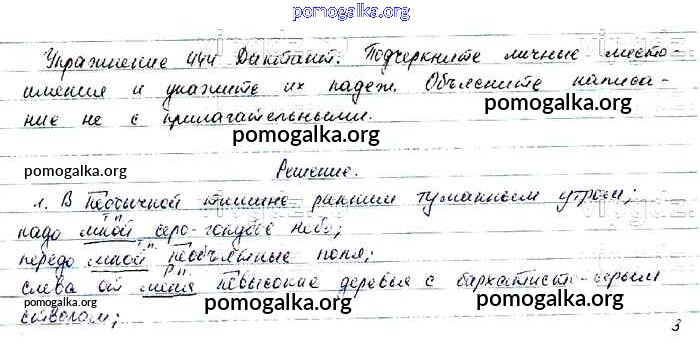 pomogalka.org
3
Упражнение 444 Диктант. Подчеркните личные место-
имения и укажите их падеж. Объясните написа-
ние не с прилагательными.
pomogalka.org
pomogalka.org
pomogalka.org
Решение.
1. В необычной тишине ранним туманным утром;
pomogalka.org
надо мной серо-голубое небо;
передо мной необъятные поля;
слева от меня невысокие деревья с бархатист-серым
pomogalka.org
pomogalka.org
pomogalka.org
стволом;
3